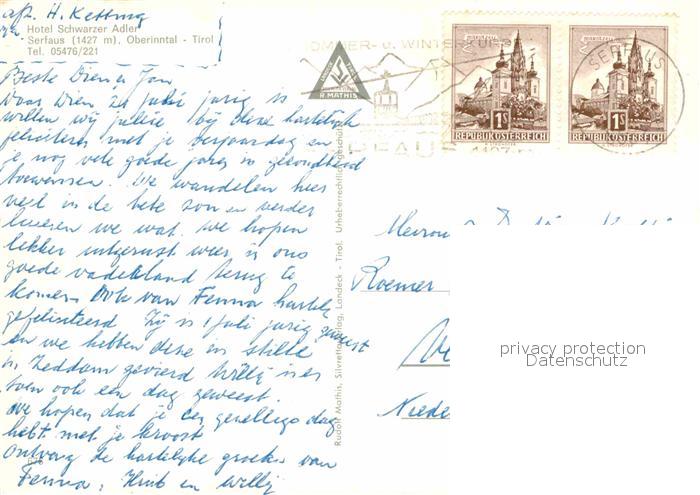 afz. H. Ketting
Hotel Schwarzer Adler
Serfaus (1427 m), Oberinntal - Tirol
Tel. 05476/221
Beste Dien en Jan,
Daar Dien 28 juli jarig is
willen wij jullie bij deze hartelijk
feliciteren met je verjaardag en
je nog vele goede jaren in gezondheid
toewensen. We wandelen hier
veel in de hete zon en verder
luieren we wat. We hopen
lekker uitgerust weer in ons
goede vaderland terug te
komen. Ook van Fenna hartelijk
gefeliciteerd. Zij is 1 juli jarig geweest
en we hebben deze in stilte
in Zeddam gevierd Willij is er
toen ook een dag geweest.
We hopen dat je een gezellige dag
hebt met je kroost
Ontvang de hartelijke groeten van
Fenna, Huib en Willij
R. MATHIS
Rudolf Mathis, Silvretta-Verlag, Landeck - Tirol. Urheberrechtlich geschützt
SOMMER- u. WINTERKURORT
SERFAUS
1427 m
1S
REPUBLIK ÖSTERREICH
1S
REPUBLIK ÖSTERREICH
SERFAUS
Roemer
privacy protection
Datenschutz